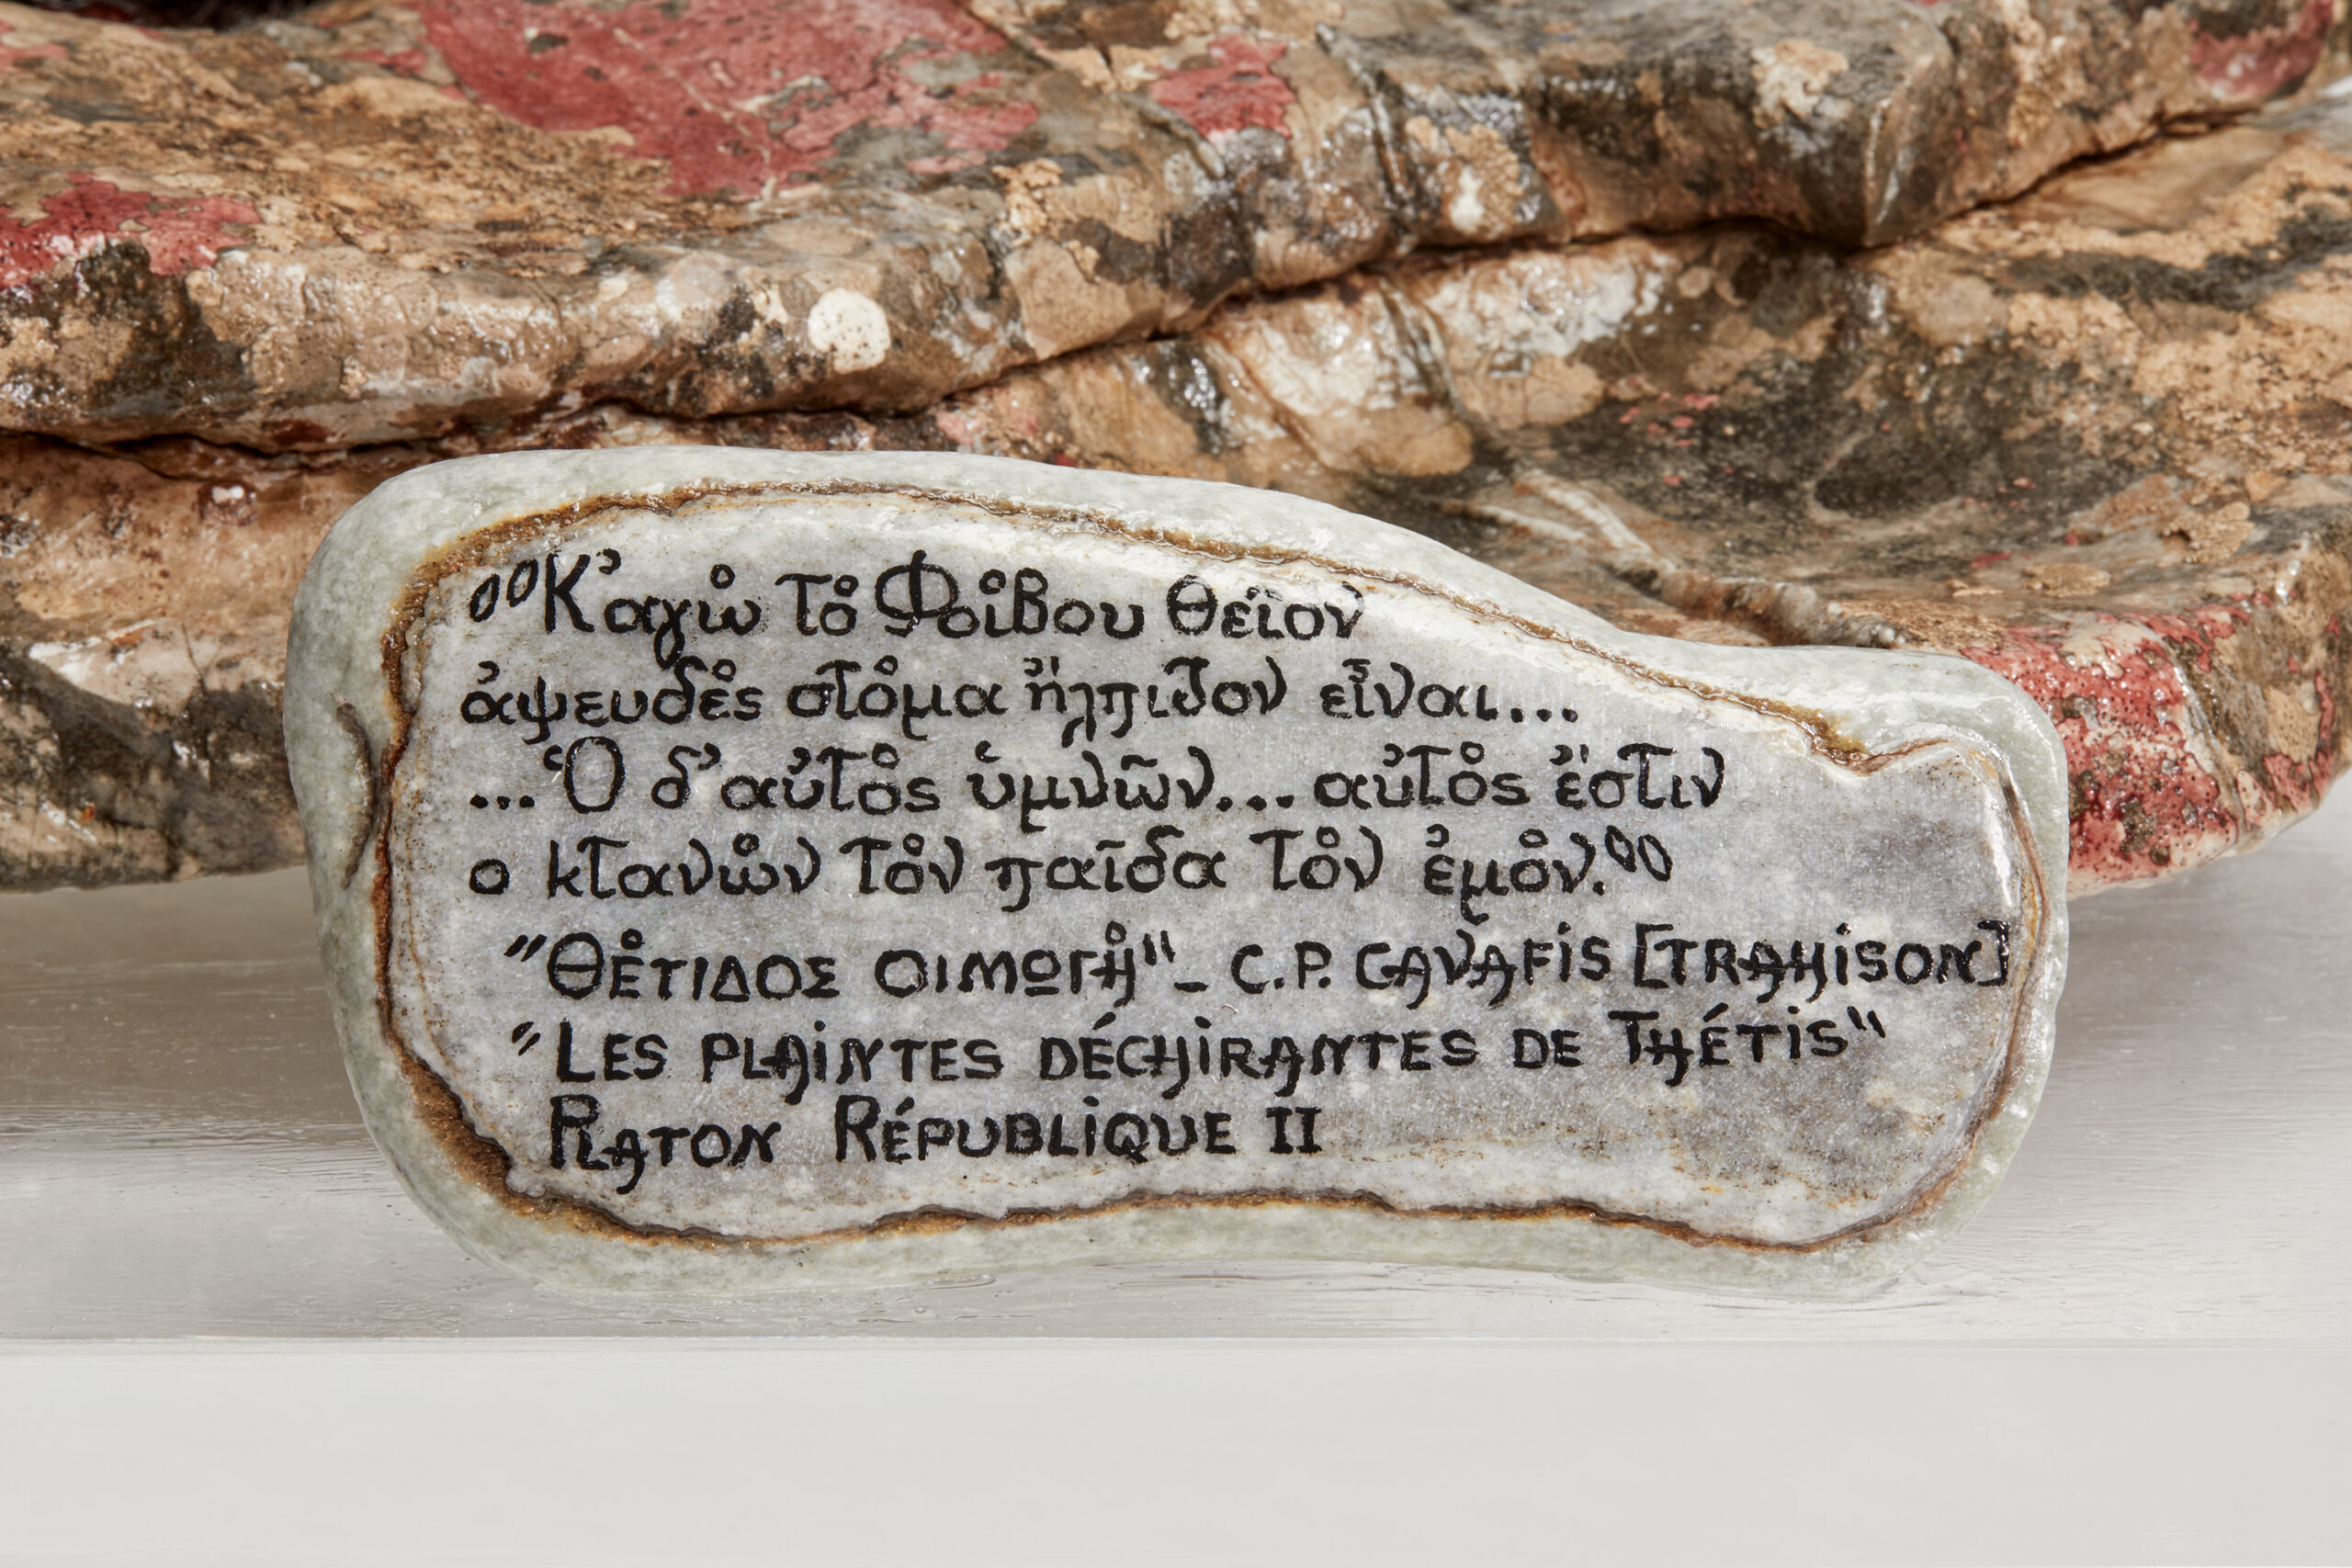 “Κ'αγὼ τὸ Φοίβου θεῖον
ἀψευδὲς στόμα ἤλπιζον εἶναι...
...Ὁ δ'αὐτὸς ὑμνῶν... αὐτὸς ἐστιν
ο κτανὼν τὸν παῖδα τὸν ἐμὸν.”
"ΘΈΤΙΔΟΣ ΟΙΜΩΓΉ" - C.P. CAVAFiS [TRAHiSON]
"LES PLAiNTES DÉCHiRANTES DE THÉTiS"
PLATON RÉPUBLiQUE II